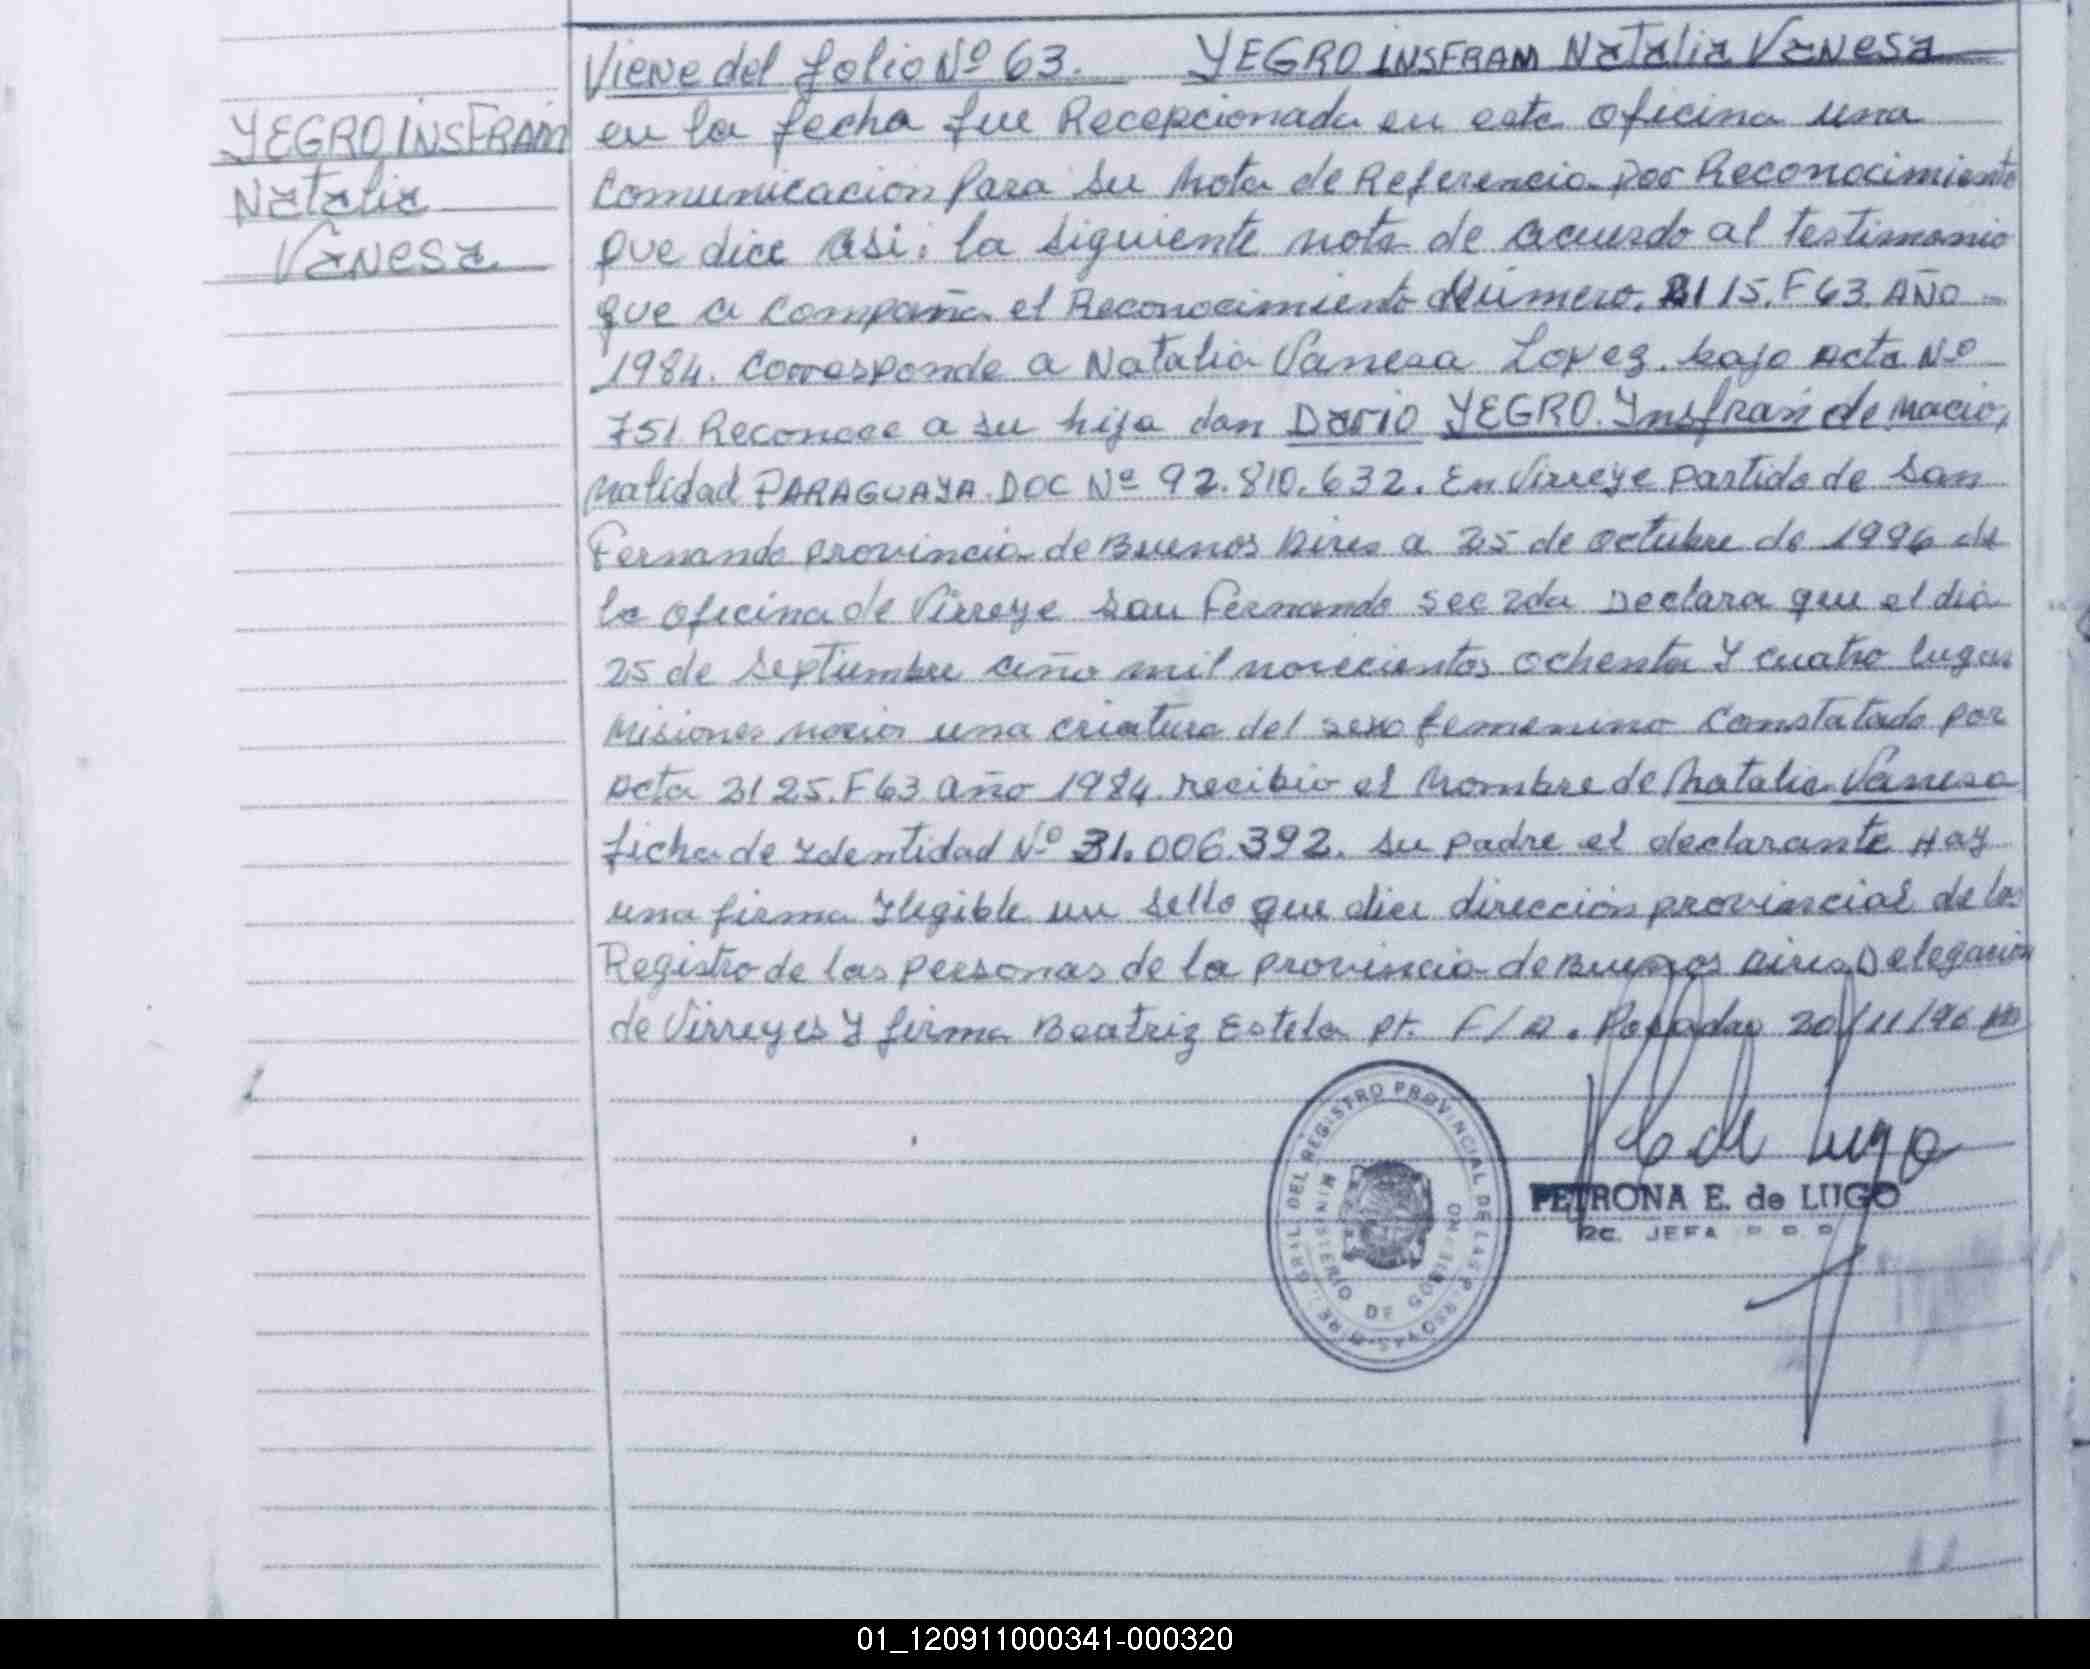 Viene del folio Nº 63. YEGRO INSFRAM Natalia Vanesa
YEGRO INSFRAM
Natalia
Vanesa
en la fecha fue Recepcionada en esta oficina una
Comunicacion Para su Nota de Referencia por Reconocimiento
que dice asi: la siguiente nota de acuerdo al testimonio
que a compaña el Reconocimiento Número. 2115. F 63. AÑO
1984. Corresponde a Natalia Vanesa Lopez. bajo acta Nº
751 Reconoce a su hija don Dario YEGRO. Ynsfran de nacio,
nalidad PARAGUAYA. DOC Nº 92.810.632. En Virreye partido de San
Fernando provincia de Buenos Aires a 25 de octubre de 1996 de
la oficina de Virreye San Fernando sec 2da Declara que el dia
25 de septiembre año mil novecientos ochenta Y cuatro lugar
Misiones nacio una criatura del sexo femenino Constatado por
acta 2125. F 63 año 1984. recibio el Nombre de Natalia Vanesa
ficha de Ydentidad Nº 31.006.392. su padre el declarante Hay
una firma Ylegible un sello que dice dirección provincial de los
Registro de las personas de la provincia de Buenos Aires Delegacion
de Virreyes Y firma Beatriz Estela Pt. F/A. Posadas 20/11/96
GRAL. DEL REGISTRO PROVINCIAL DE LAS PERSONAS
MINISTERIO DE GOBIERNO
PETRONA E. de LUGO
JEFA
01_120911000341-000320